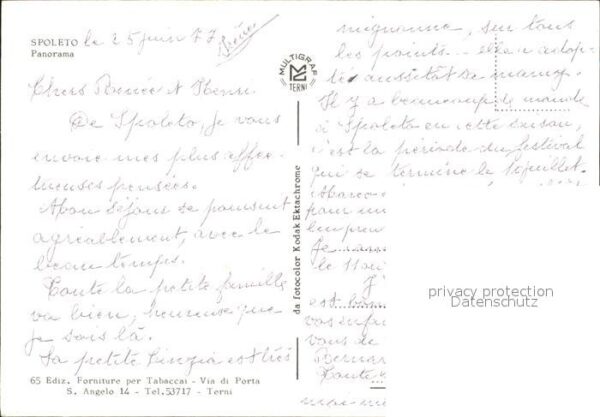 SPOLETO
Panorama
le 25 juin 77
Chers Renée et Henri
De Spoleto, je vous
envoie mes plus affec-
tueuses pensées.
Mon séjour se poursuit
agréablement, avec le
beau temps.
Toute la petite famille
va bien, heureuse que
je sois là.
La petite est très
mignonne, sur tous
les points elle a adop-
té aussitôt sa mamy.
Il y a beaucoup de monde
à Spoleto en cette saison,
c'est la période du festival
qui se termine le 10 juillet.
pour un
Je
le 11
est
vous de
Toute
MULTIGRAF
TERNI
da fotocolor Kodak Ektachrome
65 Ediz. Forniture per Tabaccai - Via di Porta
S. Angelo 14 - Tel. 53717 - Terni
privacy protection
Datenschutz